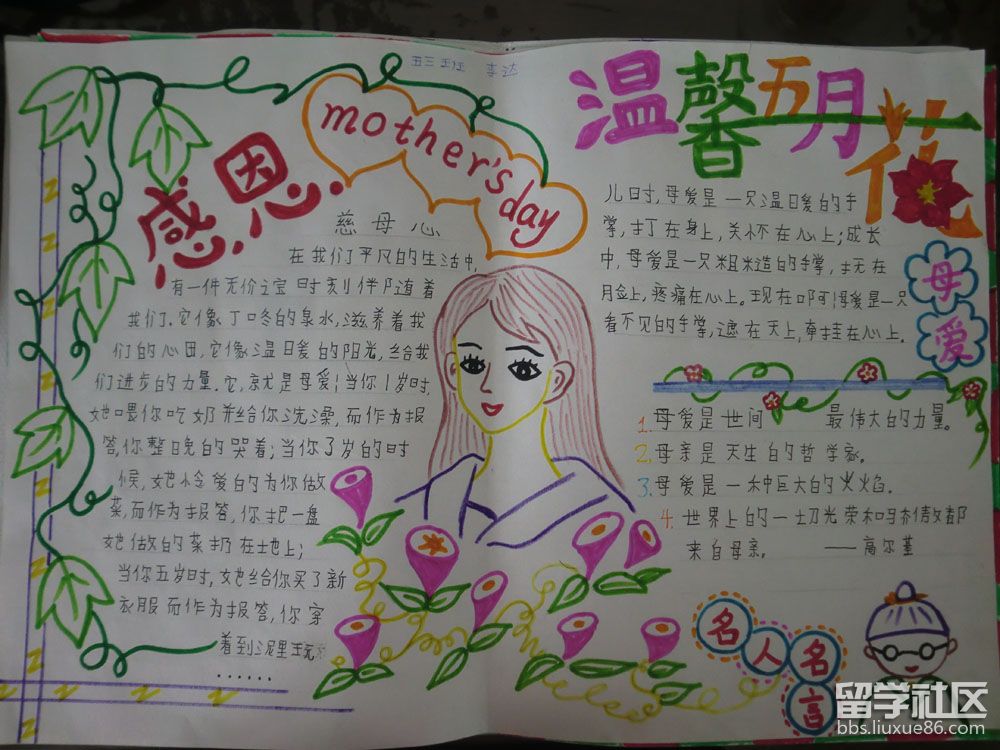 五三班 李达
mother's day
感恩
慈母心
在我们平凡的生活中,
有一件无价之宝时刻伴随着
我们.它像丁咚的泉水,滋养着我
们的心田,它像温暖的阳光,给我
们进步的力量.它,就是母爱!当你1岁时,
她喂你吃奶并给你洗澡,而作为报
答,你整晚的哭着;当你了岁的时
候,她怜爱的为你做
菜,而作为报答,你把一盘
她做的菜扔在地上;
当你五岁时,她给你买了新
衣服而作为报答,你穿
着到泥里玩
······
温馨五月花
儿时,母爱是一只温暖的手
掌,打在身上,关怀在心上;成长
中,母爱是一只粗糙的手掌,扶在
脸上,疼痛在心上。现在啊!母爱是一只
看不见的手掌,遮在天上,牵挂在心上。
母爱
1.母爱是世间 最伟大的力量。
2.母亲是天生的哲学家。
3.母爱是一种巨大的火焰。
4.世界上的一切光荣和骄傲都
来自母亲。 ——高尔基
名人名言
留学社区
bbs.liuxue86.com